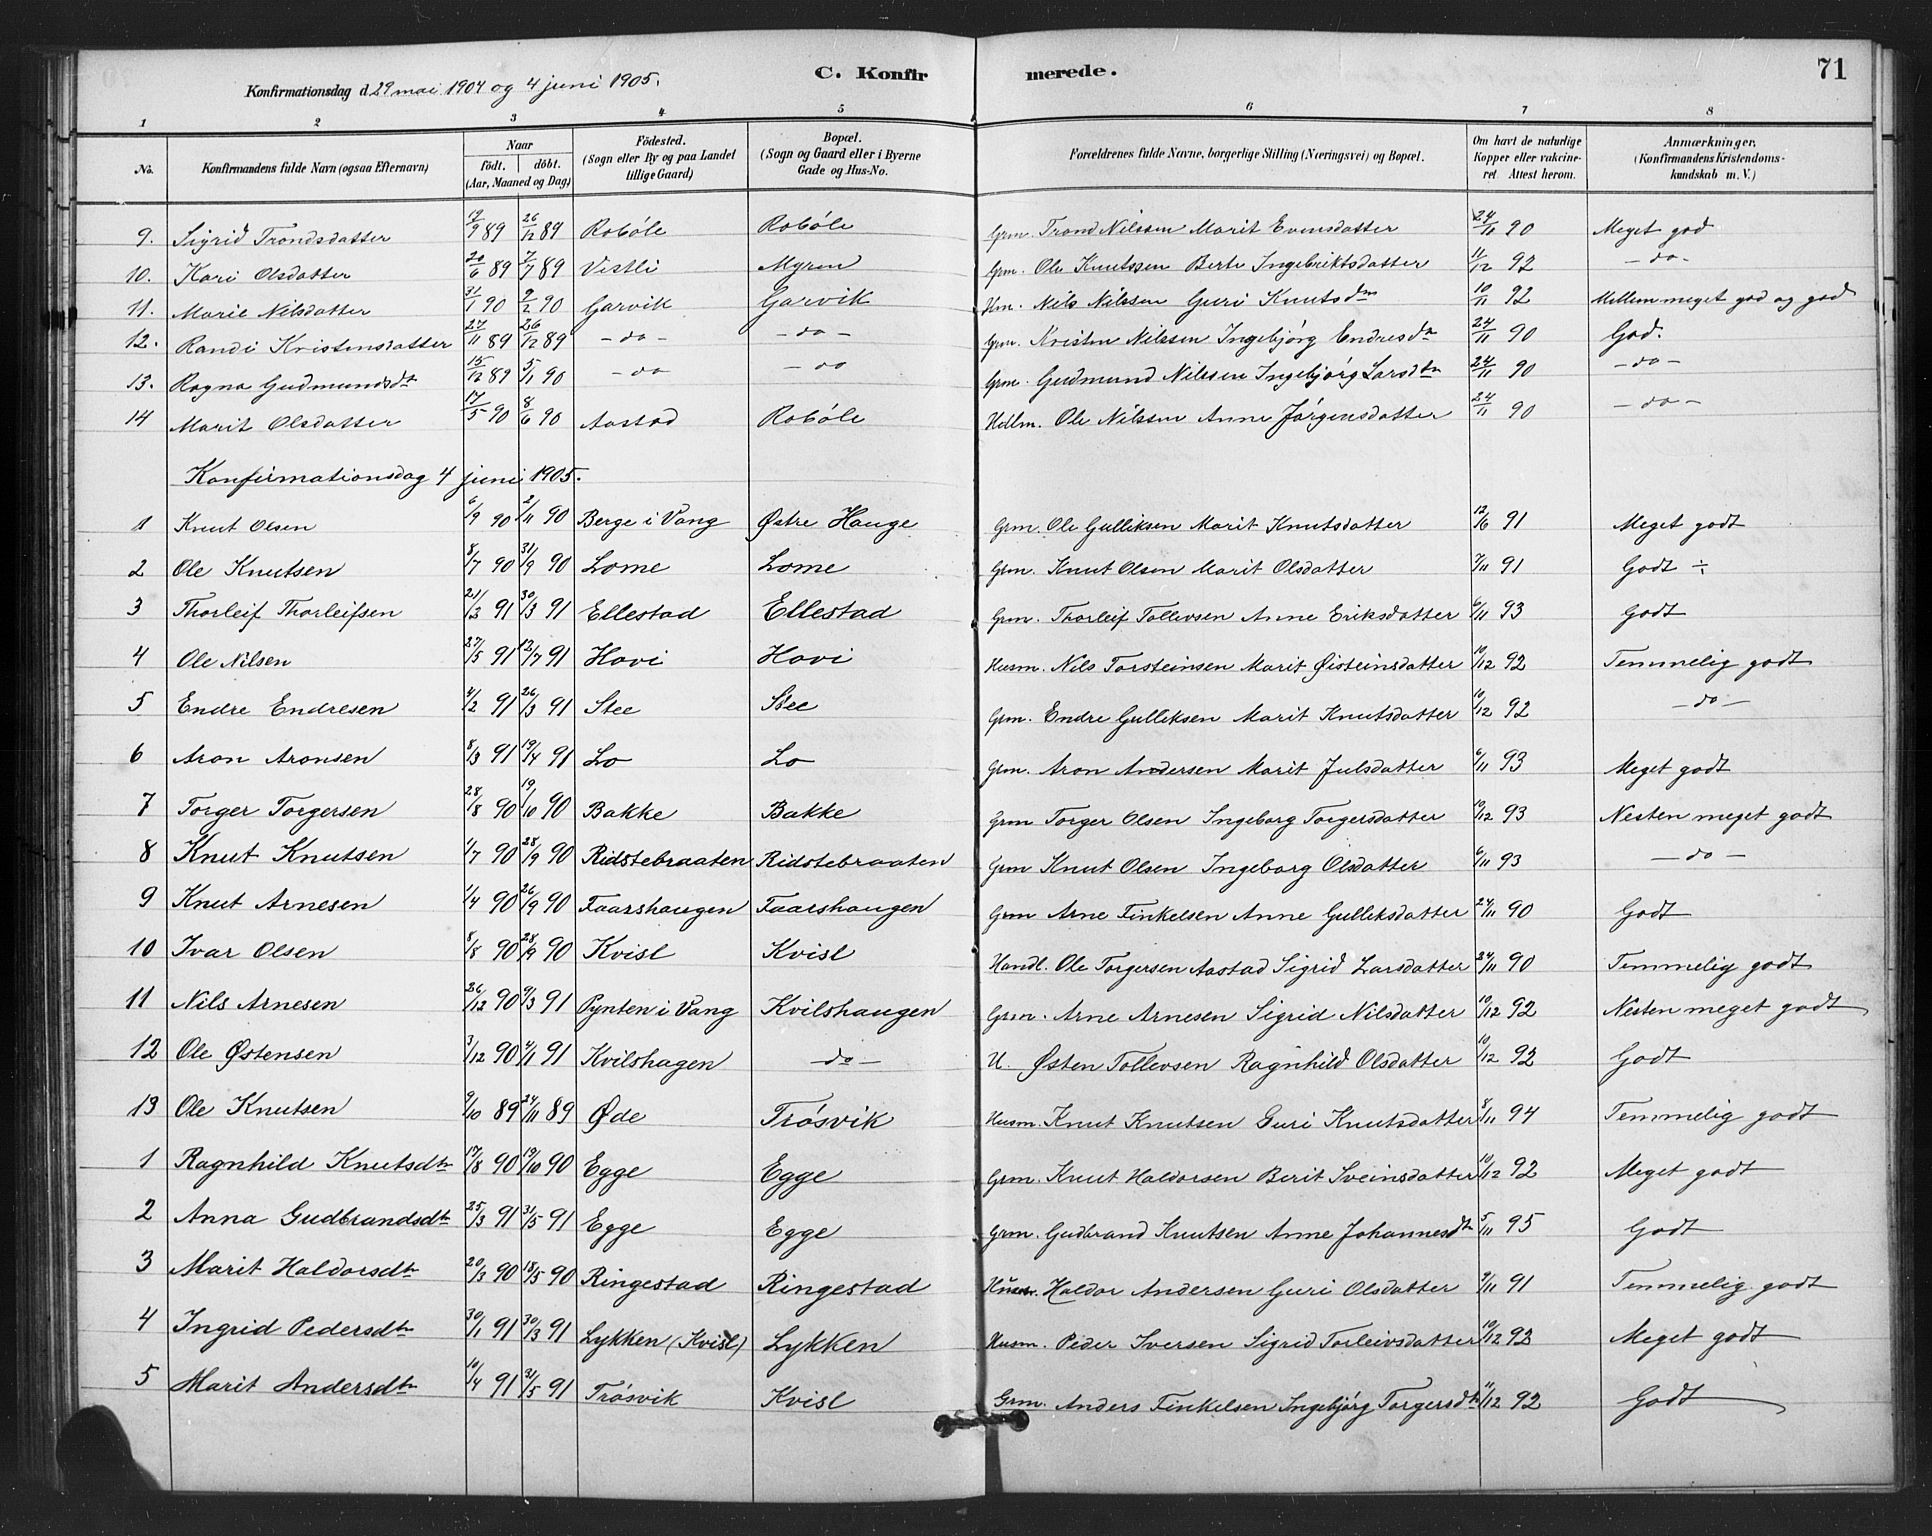 C. Konfirmerede.
71
Konfirmationsdag d. 29 mai 1904 og 4 juni 1905.
1 2 3 4 5 6 7 8
No. Konfirmandens fulde Navn (ogsaa Efternavn) Naar födt. döbt. (Aar, Maaned og Dag) Födested. (Sogn eller By og paa Landet tillige Gaard) Bopæl. (Sogn og Gaard eller i Byerne Gade og Hus-No. Forældrenes fulde Navne, borgerlige Stilling (Næringsvei) og Bopæl. Om havt de naturlige Kopper eller vakcineret. Attest herom. Anmærkninger. (Konfirmandens Kristendomskundskab m. V.)
9. Sigrid Trondsdatter 17/9 89 26/12 89 Robøle Robøle Grm. Trond Nilssen Marit Evensdatter 24/11 90 Meget god
10. Kari Olsdatter 20/6 89 7/7 89 Vestli Myren Grm. Ole Knutssen Berte Ingebriktsdatter 11/12 92 - do -
11. Marie Nilsdatter 31/1 90 9/2 90 Garvik Garvik Hm. Nils Nilssen Guri Knutsdn 10/11 92 Mellem meget god og god
12. Randi Kristensdatter 27/11 89 26/12 89 - do - - do - Grm. Kristen Nilssen Ingebjørg Endresdn 24/11 90 God.
13. Ragna Gudmundsdt 15/12 89 5/11 90 - do - do Grm. Gudmund Nilssen Ingebjørg Larsdtn 24/11 90 - do -
14 Marit Olsdatter 17/5 90 8/6 90 Aastad Robøle Hdlm. Ole Nilssen Anne Jørgensdatter 24/11 90 - do -
Konfirmationsdag 4 juni 1905.
1 Knut Olsen 6/9 90 2/11 90 Berge i Vang Østre Hauge Grm. Ole Gulliksen Marit Knutsdatter 12/6 91 Meget godt
2 Ole Knutsen 8/7 90 31/9 90 Lome Lome Grm. Knut Olsen Marit Olsdatter 7/11 91 Godt ÷
3 Thorleif Thorleifsen 21/2 91 30/3 91 Ellestad Ellestad Grm. Thorleif Tollevsen Anne Eriksdatter 6/11 93 Godt
4 Ole Nilsen 27/5 91 12/7 91 Hovi Hovi Husm. Nils Torsteinsen Marit Øisteinsdatter 10/12 92 Temmelig godt
5 Endre Endresen 4/2 91 26/3 91 Stee Stee Grm. Endre Gulliksen Marit Knutsdatter 10/12 92 - do -
6 Aron Aronsen 8/3 91 19/4 91 Lo Lo Grm. Aron Andersen Marit Julsdatter 6/11 93 Meget godt
7 Torger Torgersen 28/8 90 19/10 90 Bakke Bakke Grm Torger Olsen Ingeborg Torgersdatter 10/12 93 Nesten meget godt
8 Knut Knutsen 4/7 90 28/9 90 Ridstebraaten Ridstebraaten Grm Knut Olsen Ingeborg Olsdatter 6/11 93 - do -
9 Knut Arnesen 1/4 90 26/9 90 Faarshaugen Faarshaugen Grm Arne Finkelsen Anne Gulliksdatter 24/11 90 Godt
10 Ivar Olsen 8/8 90 28/9 90 Kvisl Kvisl Handl. Ole Torgersen Aastad Sigrid Larsdatter 24/11 90 Temmelig godt
11 Nils Arnesen 26/12 90 9/3 91 Pynten i Vang Kvilshaugen Grm. Arne Arnesen Sigrid Nilsdatter 10/12 92 Nesten meget godt
12 Ole Østensen 3/12 90 4/1 91 Kvilshagen - do - U. Østen Tollevsen Ragnhild Olsdatter 10/12 92 Godt
13 Ole Knutsen 9/10 89 24/11 89 Øde Trøsvik Husm. Knut Knutsen Guri Knutsdatter 8/11 94 Temmelig godt
1 Ragnhild Knutsdtr 17/8 90 19/10 90 Egge Egge Grm. Knut Haldorsen Berit Sveinsdatter 10/12 92 Meget godt
2 Anna Gudbrandsdtr 25/3 91 31/5 91 Egge Egge Grm. Gudbrand Knutsen Anne Johannesdtr 5/11 95 Godt
3 Marit Haldorsdtr 20/3 90 18/5 90 Ringestad Ringestad Husm. Haldor Andersen Guri Olsdatter 9/11 91 Temmelig godt
4 Ingrid Pedersdtr 30/1 91 30/3 91 Lykken (Kvisl) Lykken Husm. Peder Iversen Sigrid Torleivsdatter 10/12 92 Meget godt
5 Marit Andersdtr 10/4 91 31/5 91 Trøsvik Kvisl Grm. Anders Finkelsen Ingebjørg Torgersdtr 11/12 92 Godt